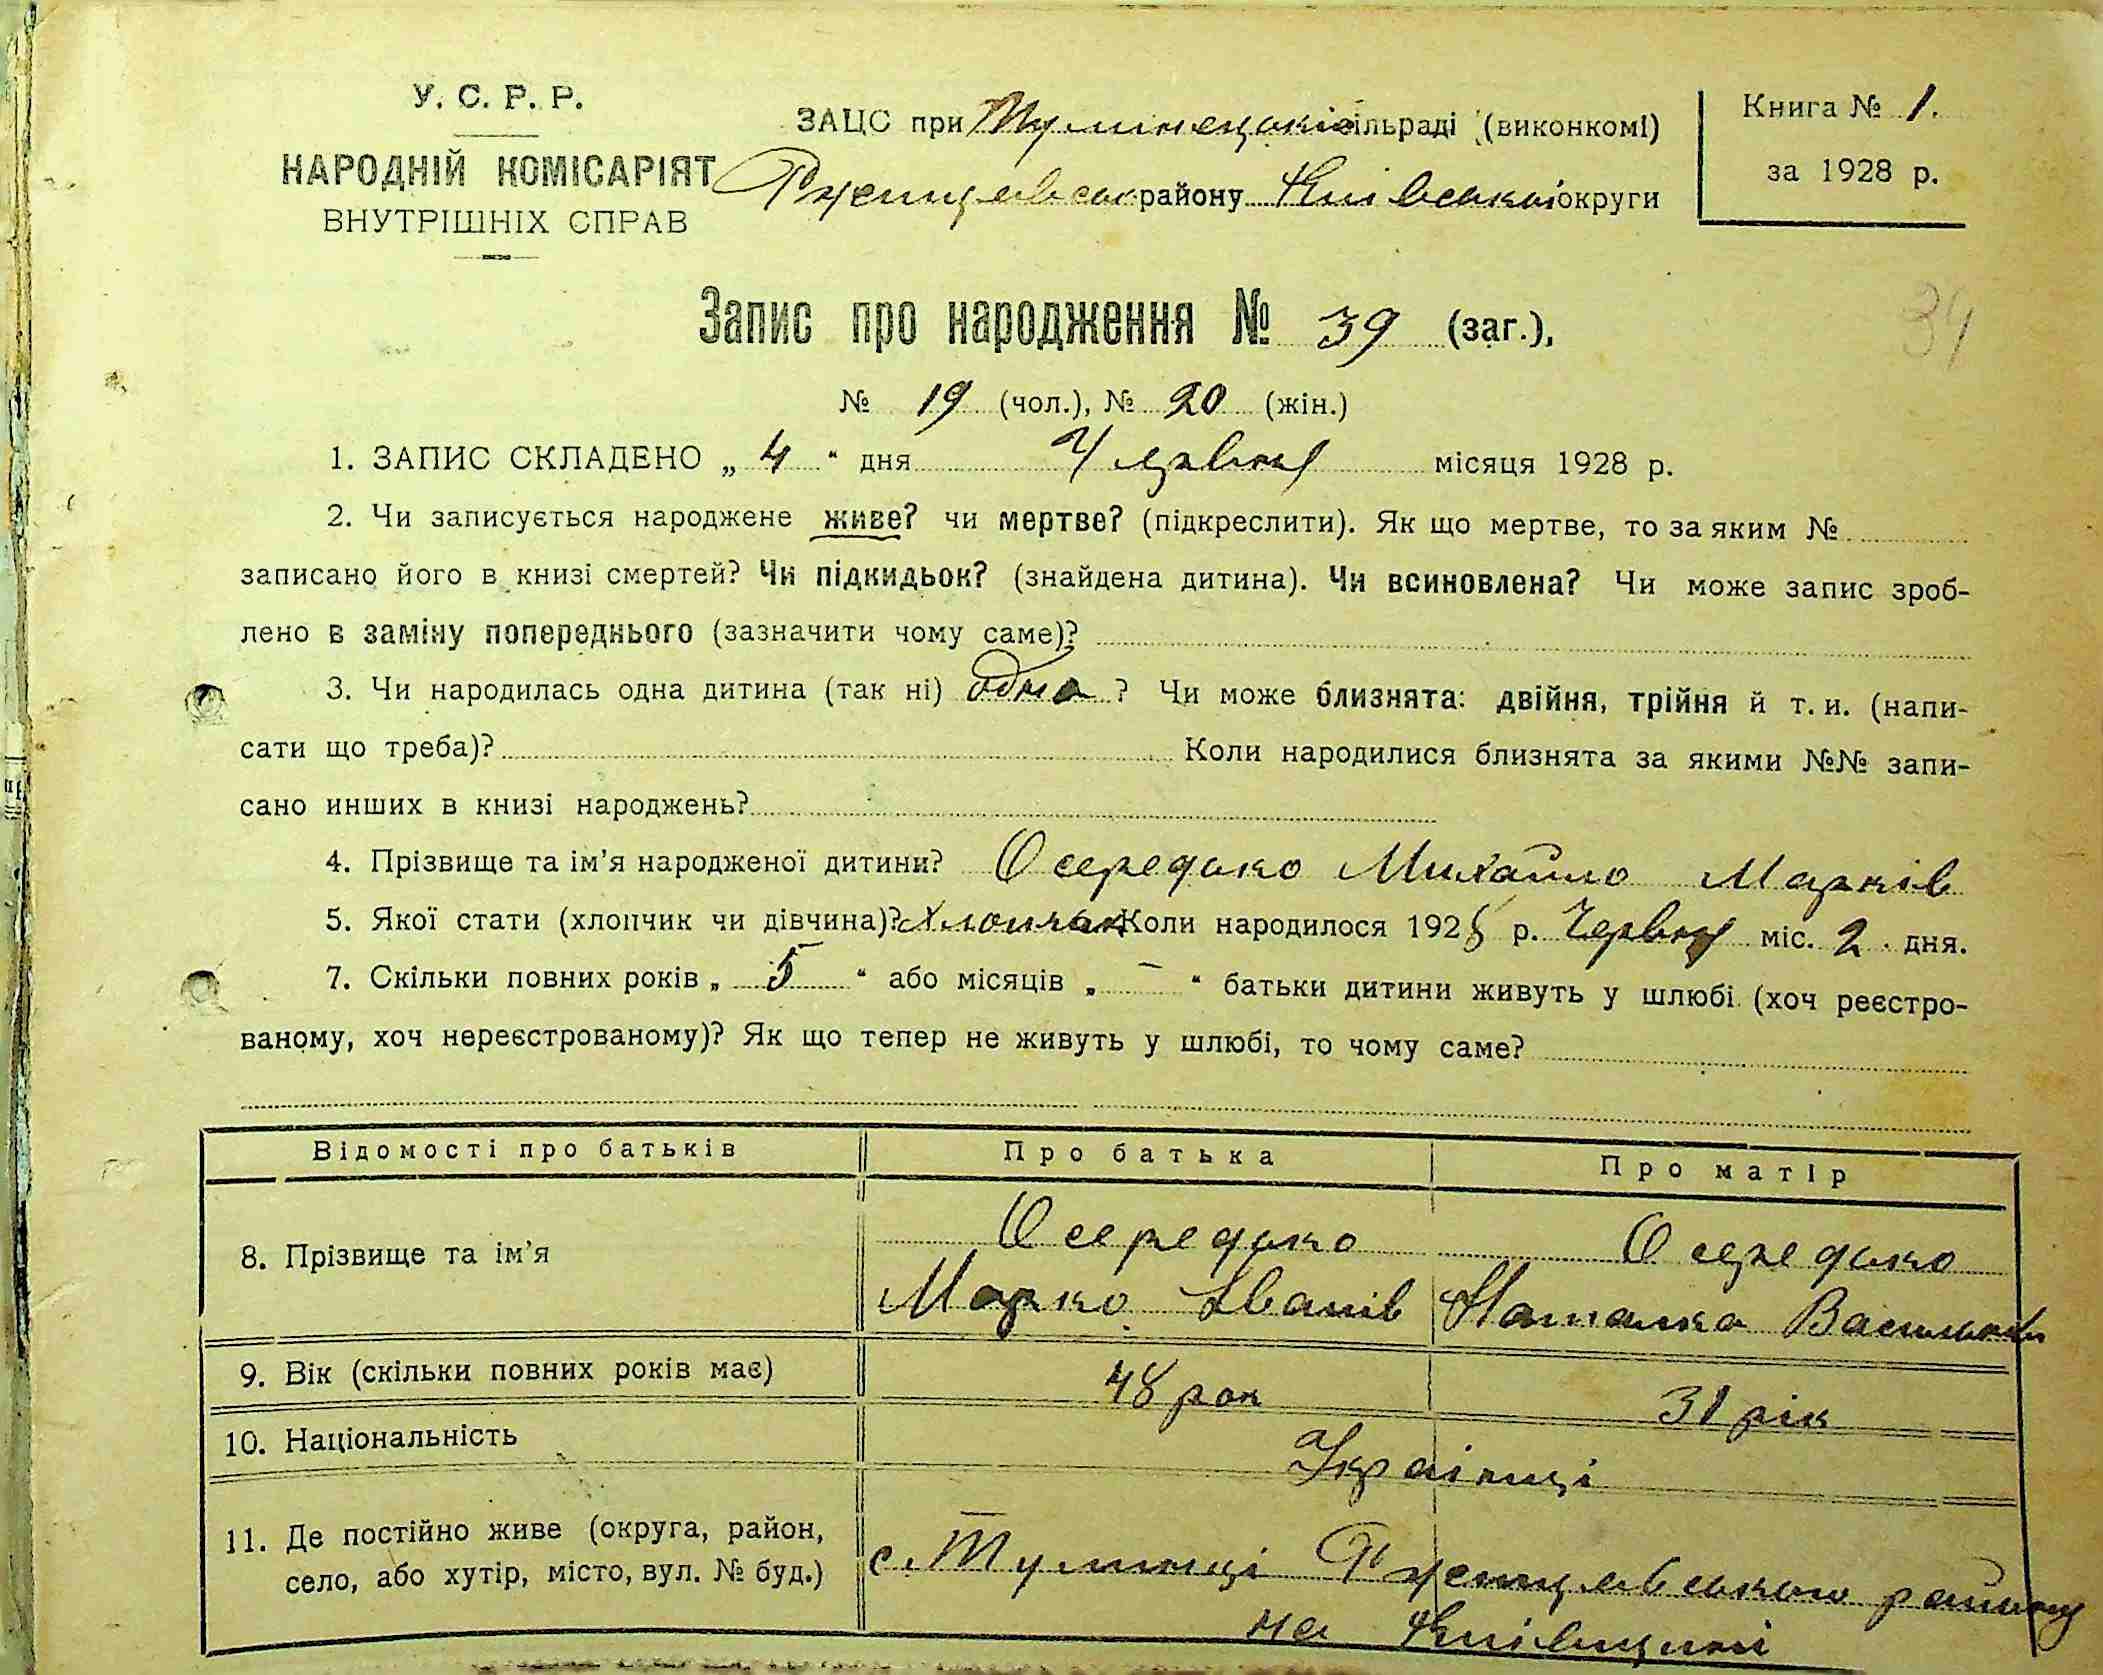 У. С. Р. Р.
НАРОДНІЙ КОМІСАРІЯТ
ВНУТРІШНІХ СПРАВ
ЗАЦС при Тулинецькій сільраді (виконкомі)
Ржищевськ району Київської округи
Книга № 1.
за 1928 р.
34
Запис про народження № 39 (заг.),
№ 19 (чол.), № 20 (жін.)
1. ЗАПИС СКЛАДЕНО „ 4 “ дня Червня місяця 1928 р.
2. Чи записується народжене живе? чи мертве? (підкреслити). Як що мертве, то за яким №
записано його в книзі смертей? Чи підкидьок? (знайдена дитина). Чи всиновлена? Чи може запис зроб-
лено в заміну попереднього (зазначити чому саме)?
3. Чи народилась одна дитина (так ні) одна ? Чи може близнята: двійня, трійня й т. и. (напи-
сати що треба)? Коли народилися близнята за якими №№ запи-
сано инших в книзі народжень?
4. Прізвище та ім’я народженої дитини? Осередько Михайло Марків
5. Якої стати (хлопчик чи дівчина)? хлопчак Коли народилося 1928 р. Червня міс. 2 дня.
7. Скільки повних років „ 5 “ або місяців „ – “ батьки дитини живуть у шлюбі (хоч реєстро-
ваному, хоч нереєстрованому)? Як що тепер не живуть у шлюбі, то чому саме?
Відомості про батьків Про батька Про матір
8. Прізвище та ім’я Осередько Осередько
Марко Іванів Наталка Василівни
9. Вік (скільки повних років має) 48 рок 31 рік
10. Національність Українці
11. Де постійно живе (округа, район,
село, або хутір, місто, вул. № буд.)
с. Тулинці Ржищевського району
на Київщині